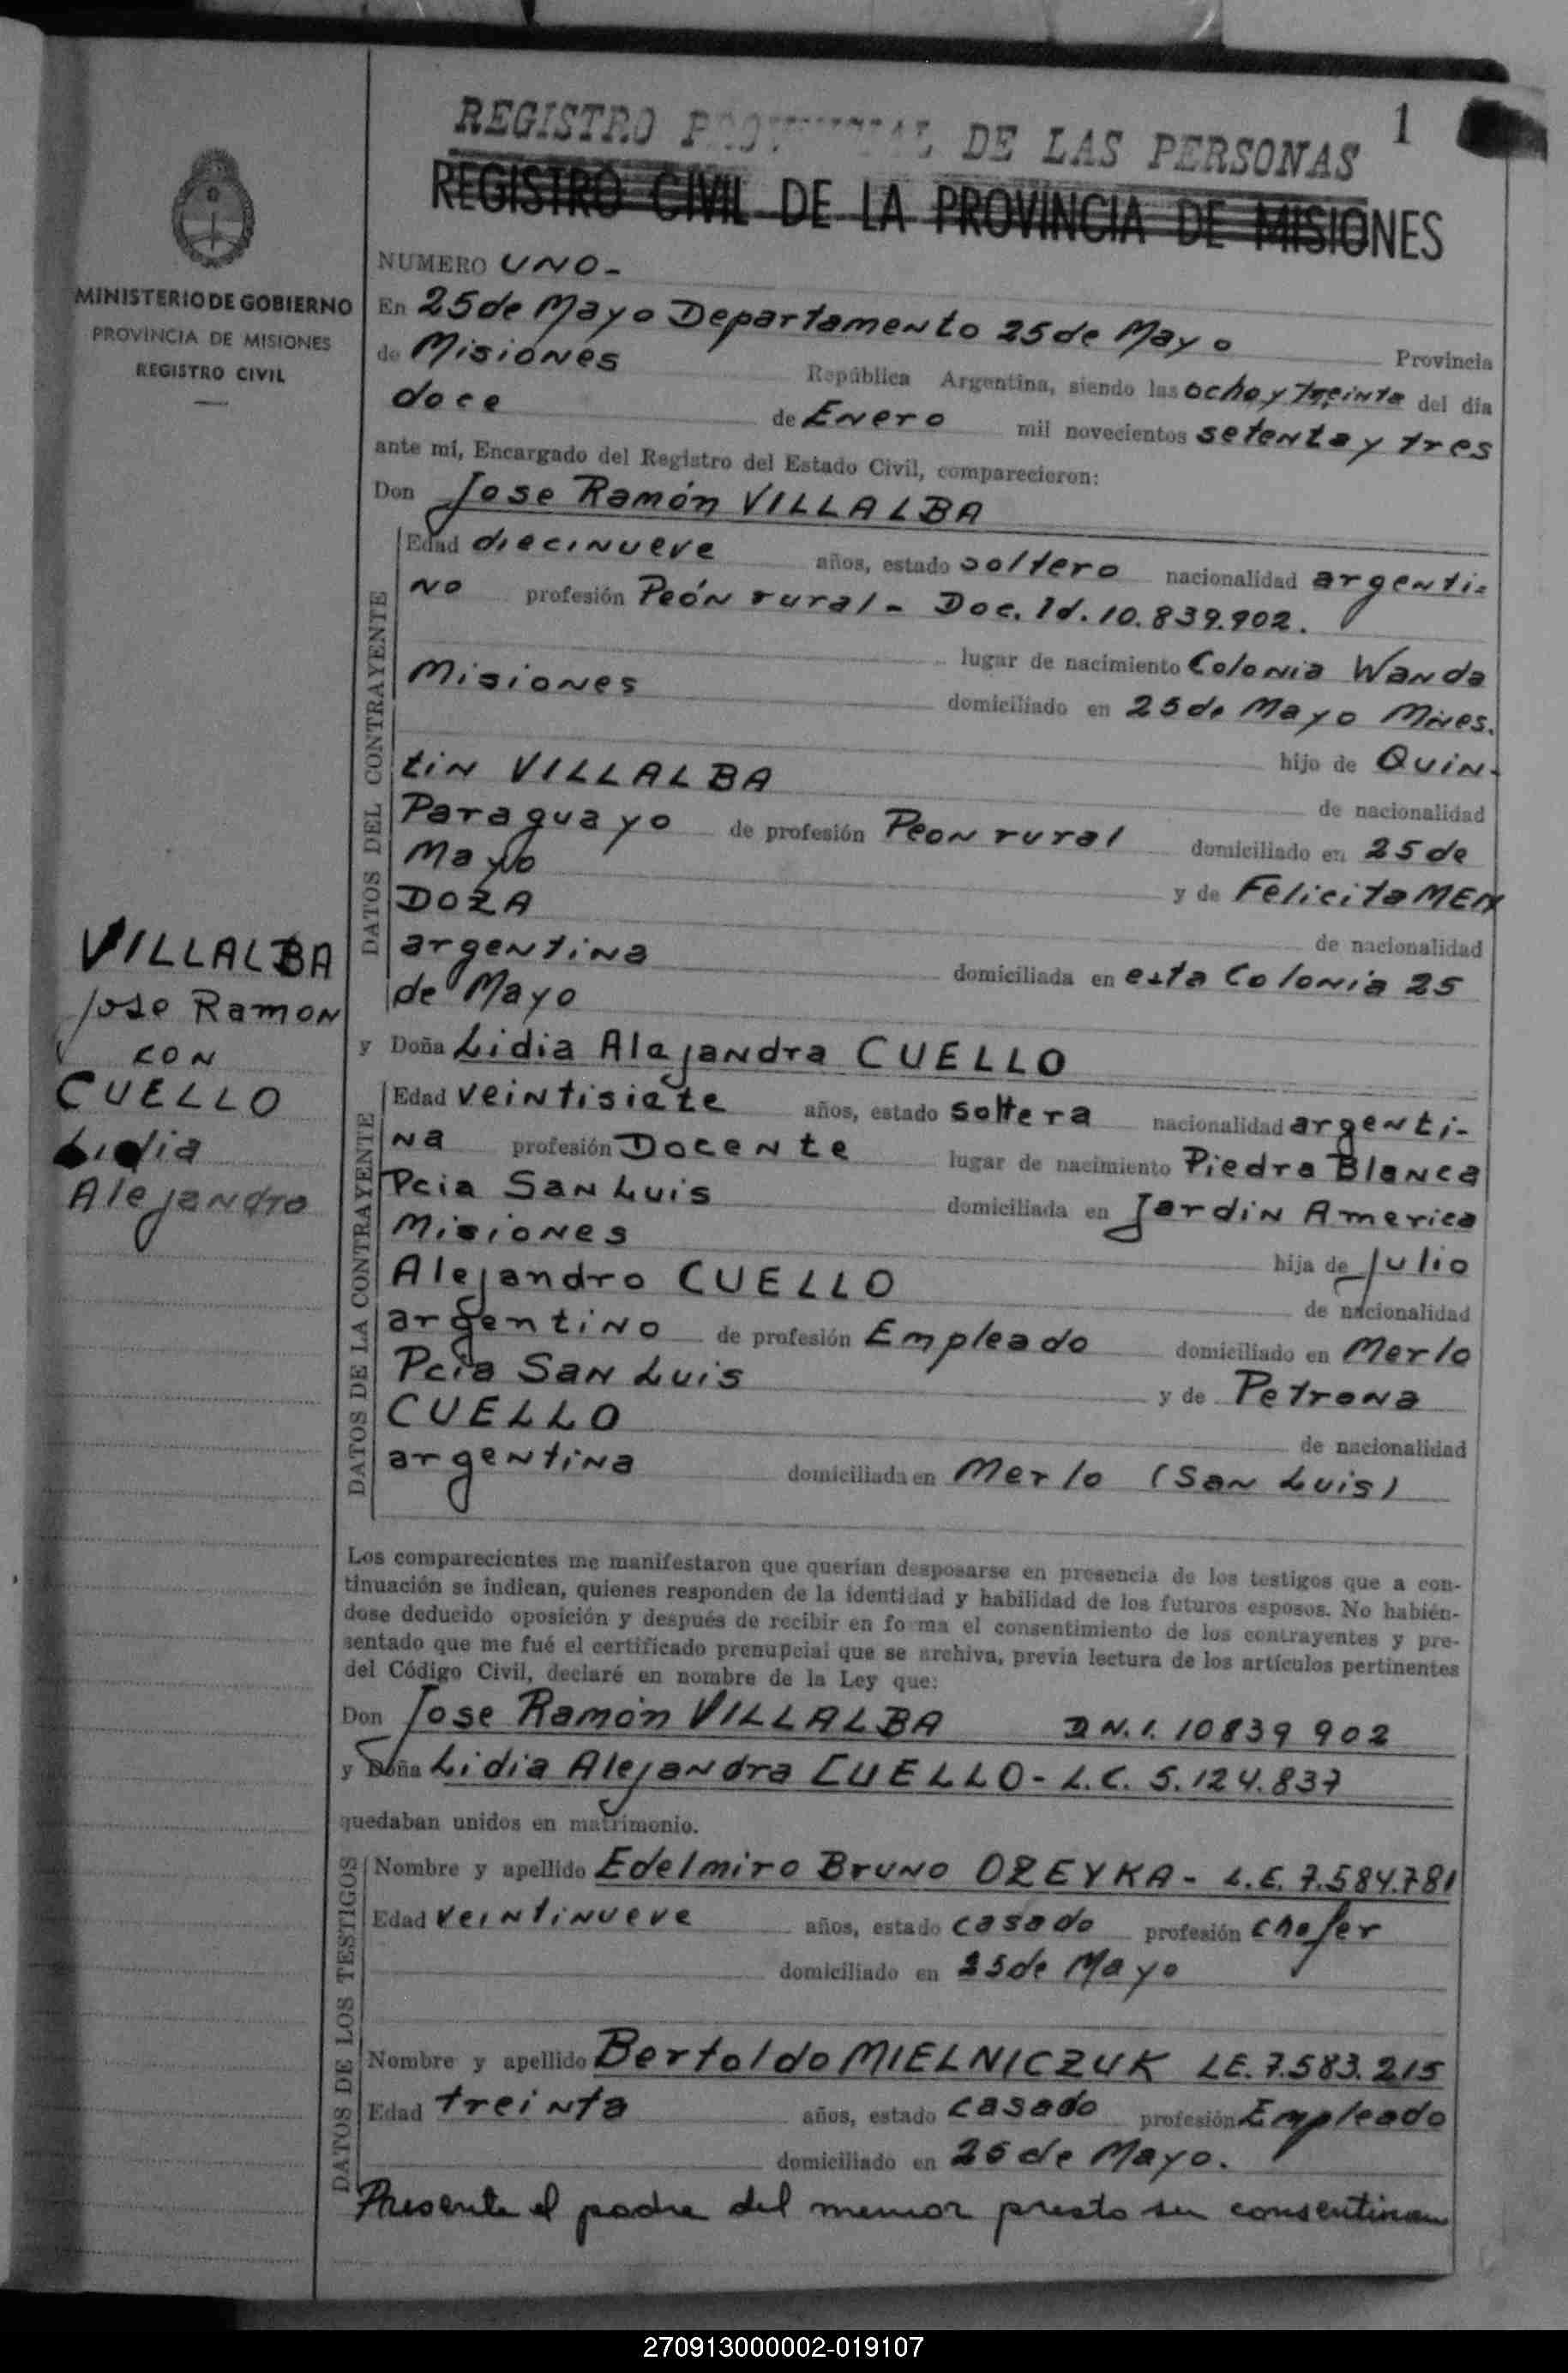 REGISTRO PROVINCIAL DE LAS PERSONAS
1
REGISTRO CIVIL DE LA PROVINCIA DE MISIONES
MINISTERIO DE GOBIERNO
PROVINCIA DE MISIONES
REGISTRO CIVIL
NUMERO UNO-
En 25 de Mayo Departamento 25 de Mayo Provincia
de Misiones República Argentina, siendo las ocho y treinta del día
doce de Enero mil novecientos setenta y tres
ante mí, Encargado del Registro del Estado Civil, comparecieron:
Don Jose Ramón VILLALBA
DATOS DEL CONTRAYENTE
Edad diecinueve años, estado soltero nacionalidad argenti-
no profesión Peón rural - Doc. Id. 10.839.902.
lugar de nacimiento Colonia Wanda
Misiones domiciliado en 25 de Mayo Mnes.
hijo de Quin-
tin VILLALBA
de nacionalidad
Paraguayo de profesión Peon rural domiciliado en 25 de
Mayo
y de Felicita MEN
DOZA
de nacionalidad
argentina domiciliada en esta Colonia 25
de Mayo
VILLALBA
Jose Ramon
CON
CUELLO
Lidia
Alejandra
y Doña Lidia Alejandra CUELLO
DATOS DE LA CONTRAYENTE
Edad veintisiete años, estado soltera nacionalidad argenti-
na profesión Docente lugar de nacimiento Piedra Blanca
Pcia San Luis domiciliada en Jardin America
Misiones
hija de Julio
Alejandro CUELLO
de nacionalidad
argentino de profesión Empleado domiciliado en Merlo
Pcia San Luis
y de Petrona
CUELLO
de nacionalidad
argentina domiciliada en Merlo (San Luis)
Los comparecientes me manifestaron que querían desposarse en presencia de los testigos que a con-
tinuación se indican, quienes responden de la identidad y habilidad de los futuros esposos. No habién-
dose deducido oposición y después de recibir en fo ma el consentimiento de los contrayentes y pre-
sentado que me fué el certificado prenupcial que se archiva, previa lectura de los artículos pertinentes
del Código Civil, declaré en nombre de la Ley que:
Don Jose Ramón VILLALBA D N.I. 10839 902
y Doña Lidia Alejandra CUELLO - L.C. 5.124.837
quedaban unidos en matrimonio.
DATOS DE LOS TESTIGOS
Nombre y apellido Edelmiro Bruno OZEYKA - L.E. 7.584.781
Edad veintinueve años, estado casado profesión chofer
domiciliado en 25 de Mayo
Nombre y apellido Bertoldo MIELNICZUK LE. 7.583.215
Edad treinta años, estado casado profesión Empleado
domiciliado en 25 de Mayo.
Presente el padre del menor presto su consentimien
270913000002-019107